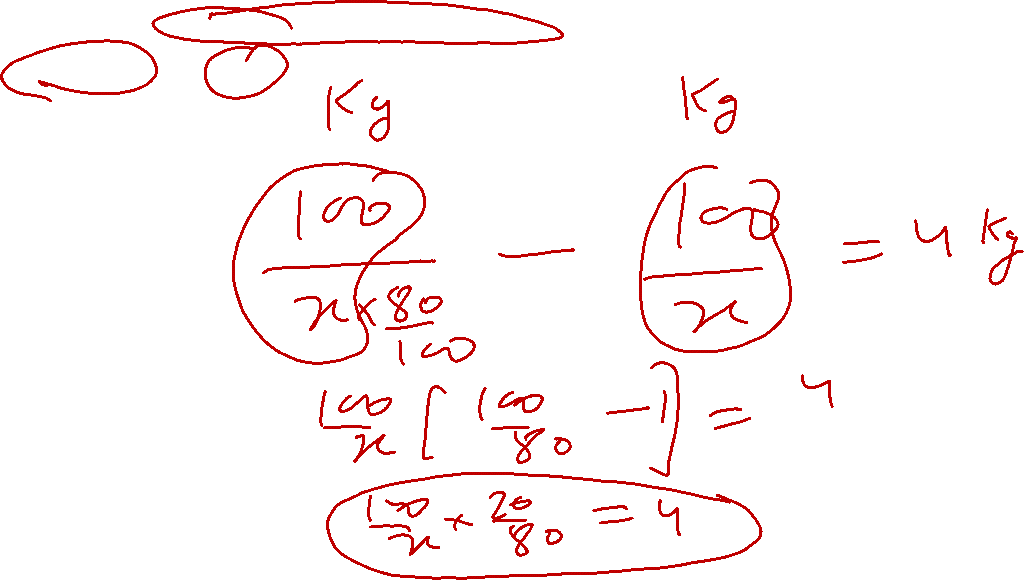 Kg Kg
100/(x × 80/100) - 100/x = 4 Kg
100/x [ 100/80 - 1 ] = 4
100/x × 20/80 = 4